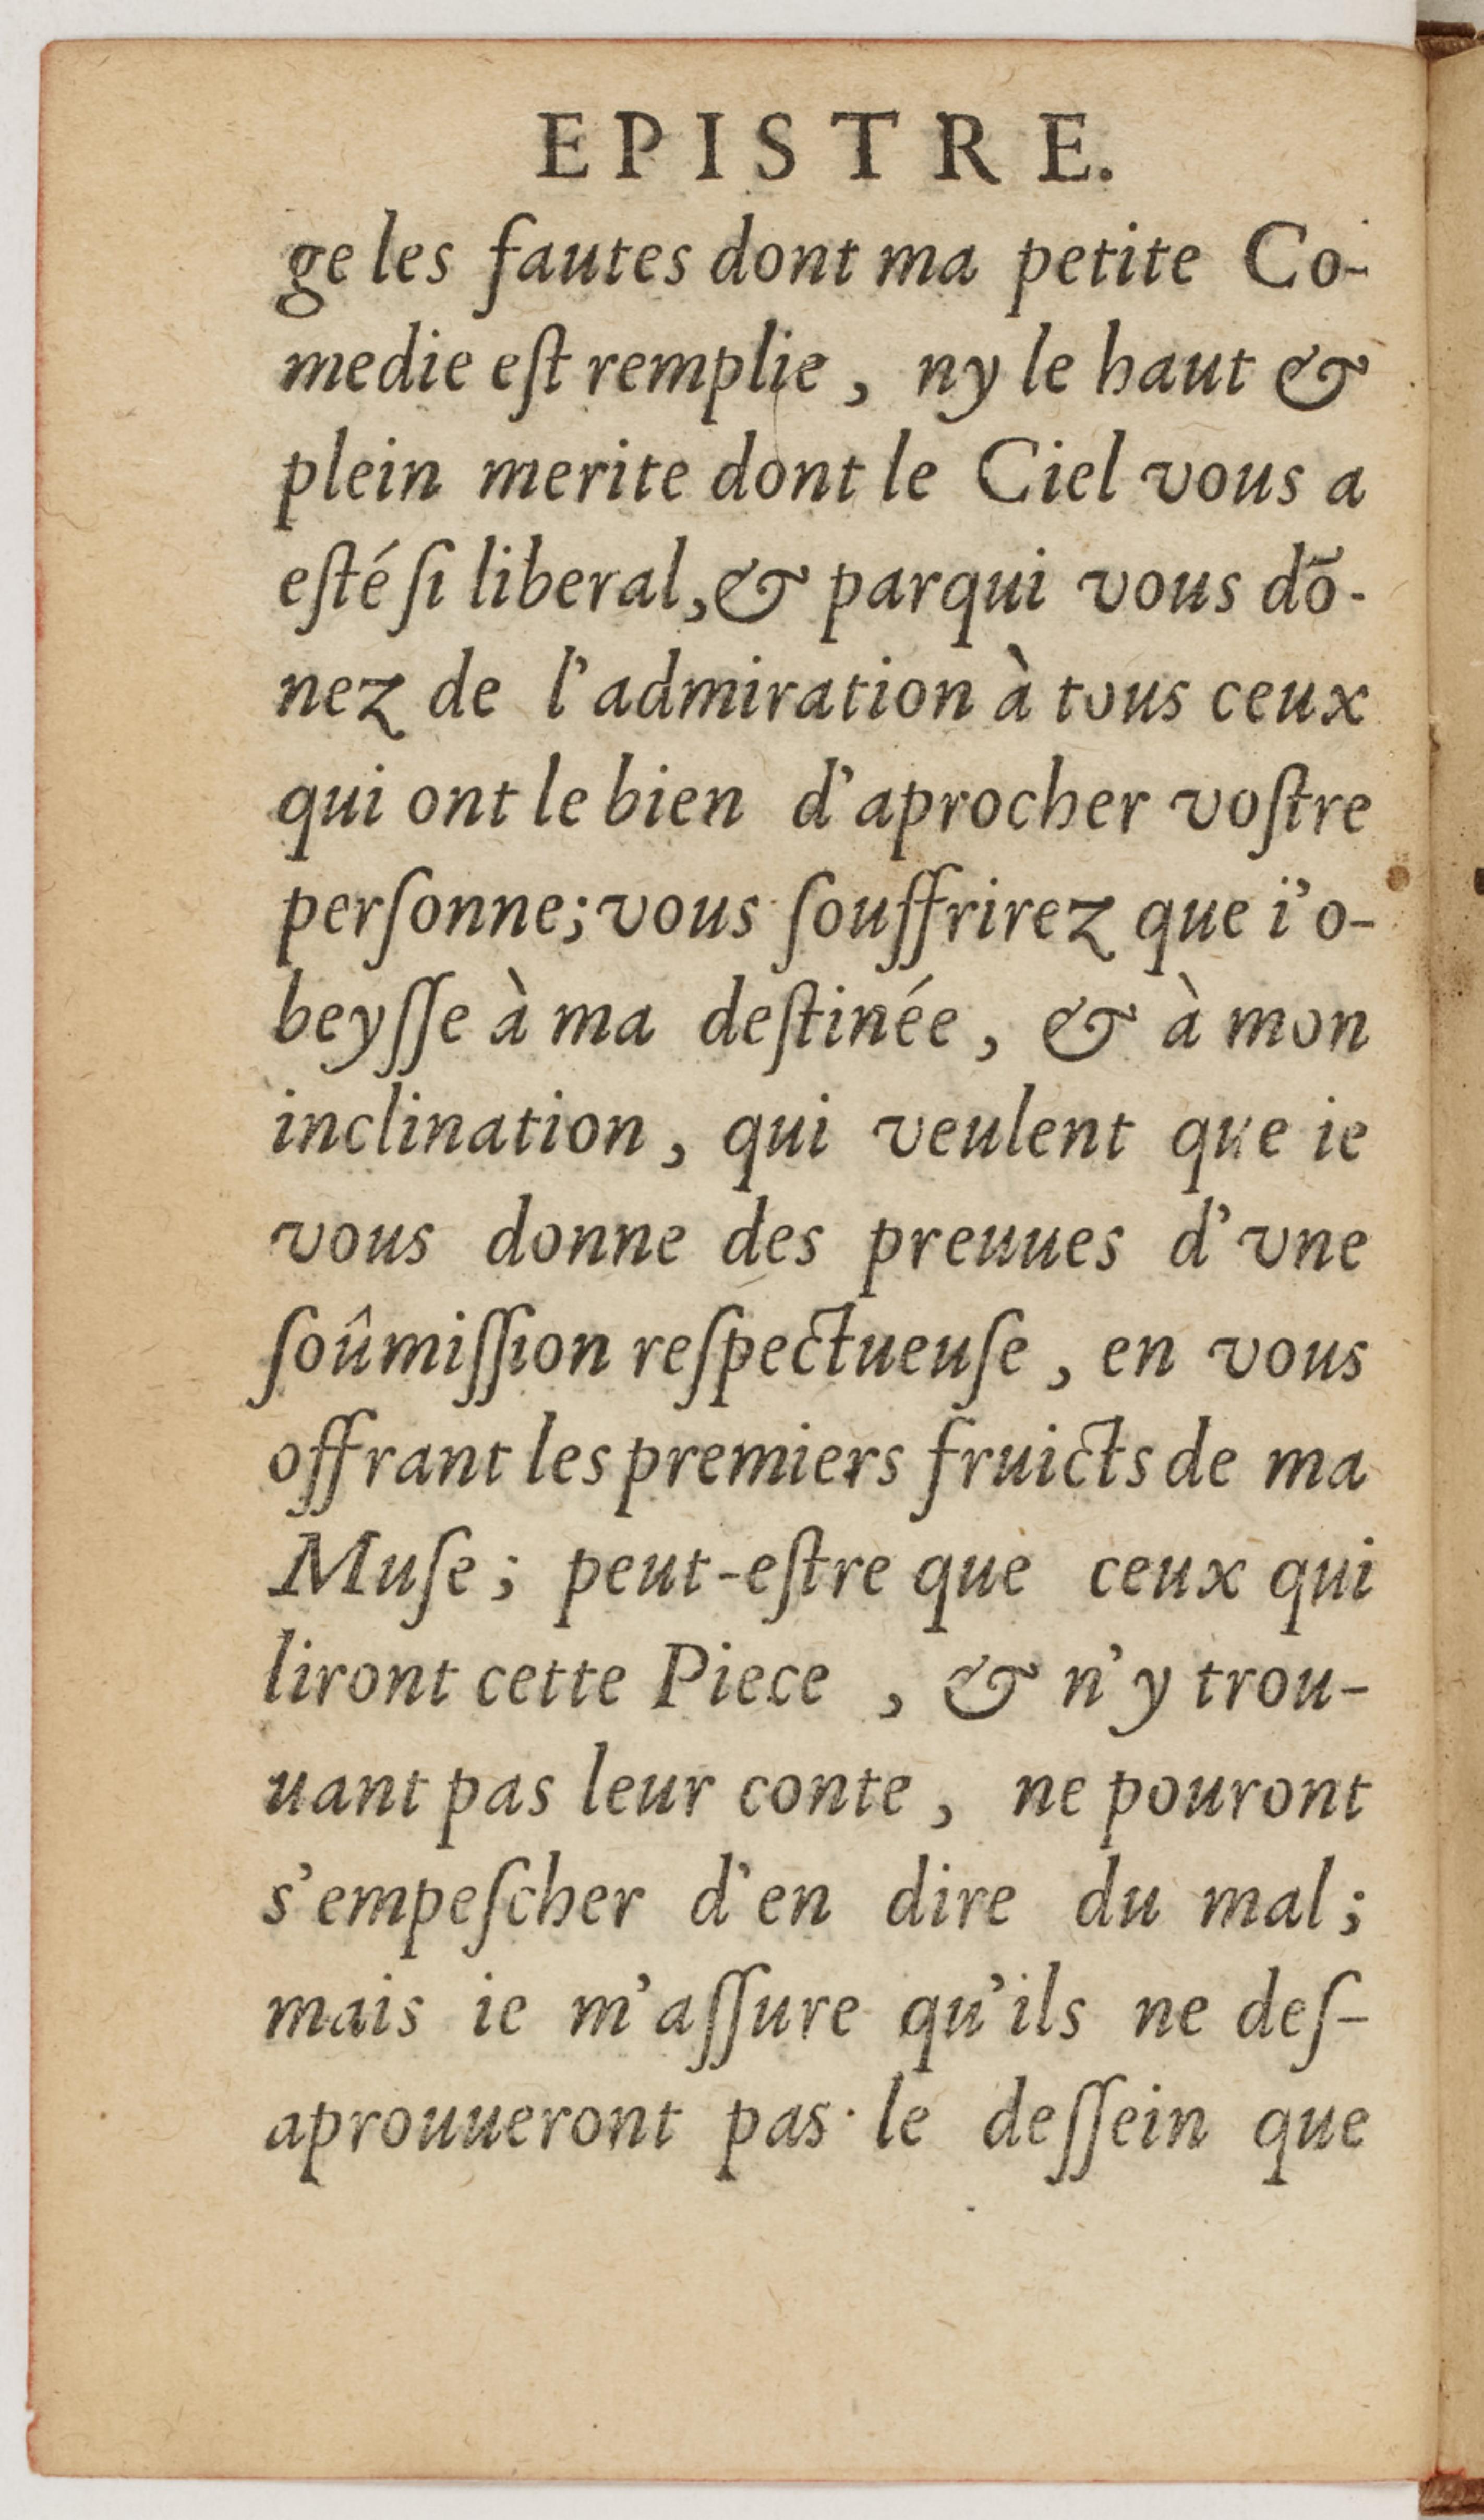 EPISTRE.
ge les fautes dont ma petite Co-
medie eſt remplie, ny le haut &
plein merite dont le Ciel vous a
eſté ſi liberal, & parqui vous dõ-
nez de l'admiration à tous ceux
qui ont le bien d'aprocher voſtre
perſonne; vous ſouffrirez que i'o-
beyſſe à ma deſtinée, & à mon
inclination, qui veulent que ie
vous donne des preuues d'vne
ſoûmiſſion reſpectueuſe, en vous
offrant les premiers fruicts de ma
Muſe; peut-eſtre que ceux qui
liront cette Piece, & n'y trou-
uant pas leur conte, ne pouront
s'empeſcher d'en dire du mal;
mais ie m'aſſure qu'ils ne deſ-
aprouueront pas le deſſein que